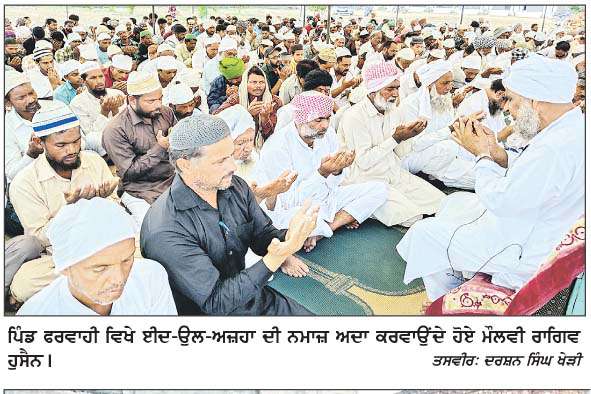 ਪਿੰਡ ਫਰਵਾਹੀ ਵਿਖੇ ਈਦ-ਉਲ-ਅਜ਼ਹਾ ਦੀ ਨਮਾਜ਼ ਅਦਾ ਕਰਵਾਉਂਦੇ ਹੋਏ ਮੌਲਵੀ ਰਾਗਿਵ
ਹੁਸੈਨ। ਤਸਵੀਰ: ਦਰਸ਼ਨ ਸਿੰਘ ਖੇੜੀ